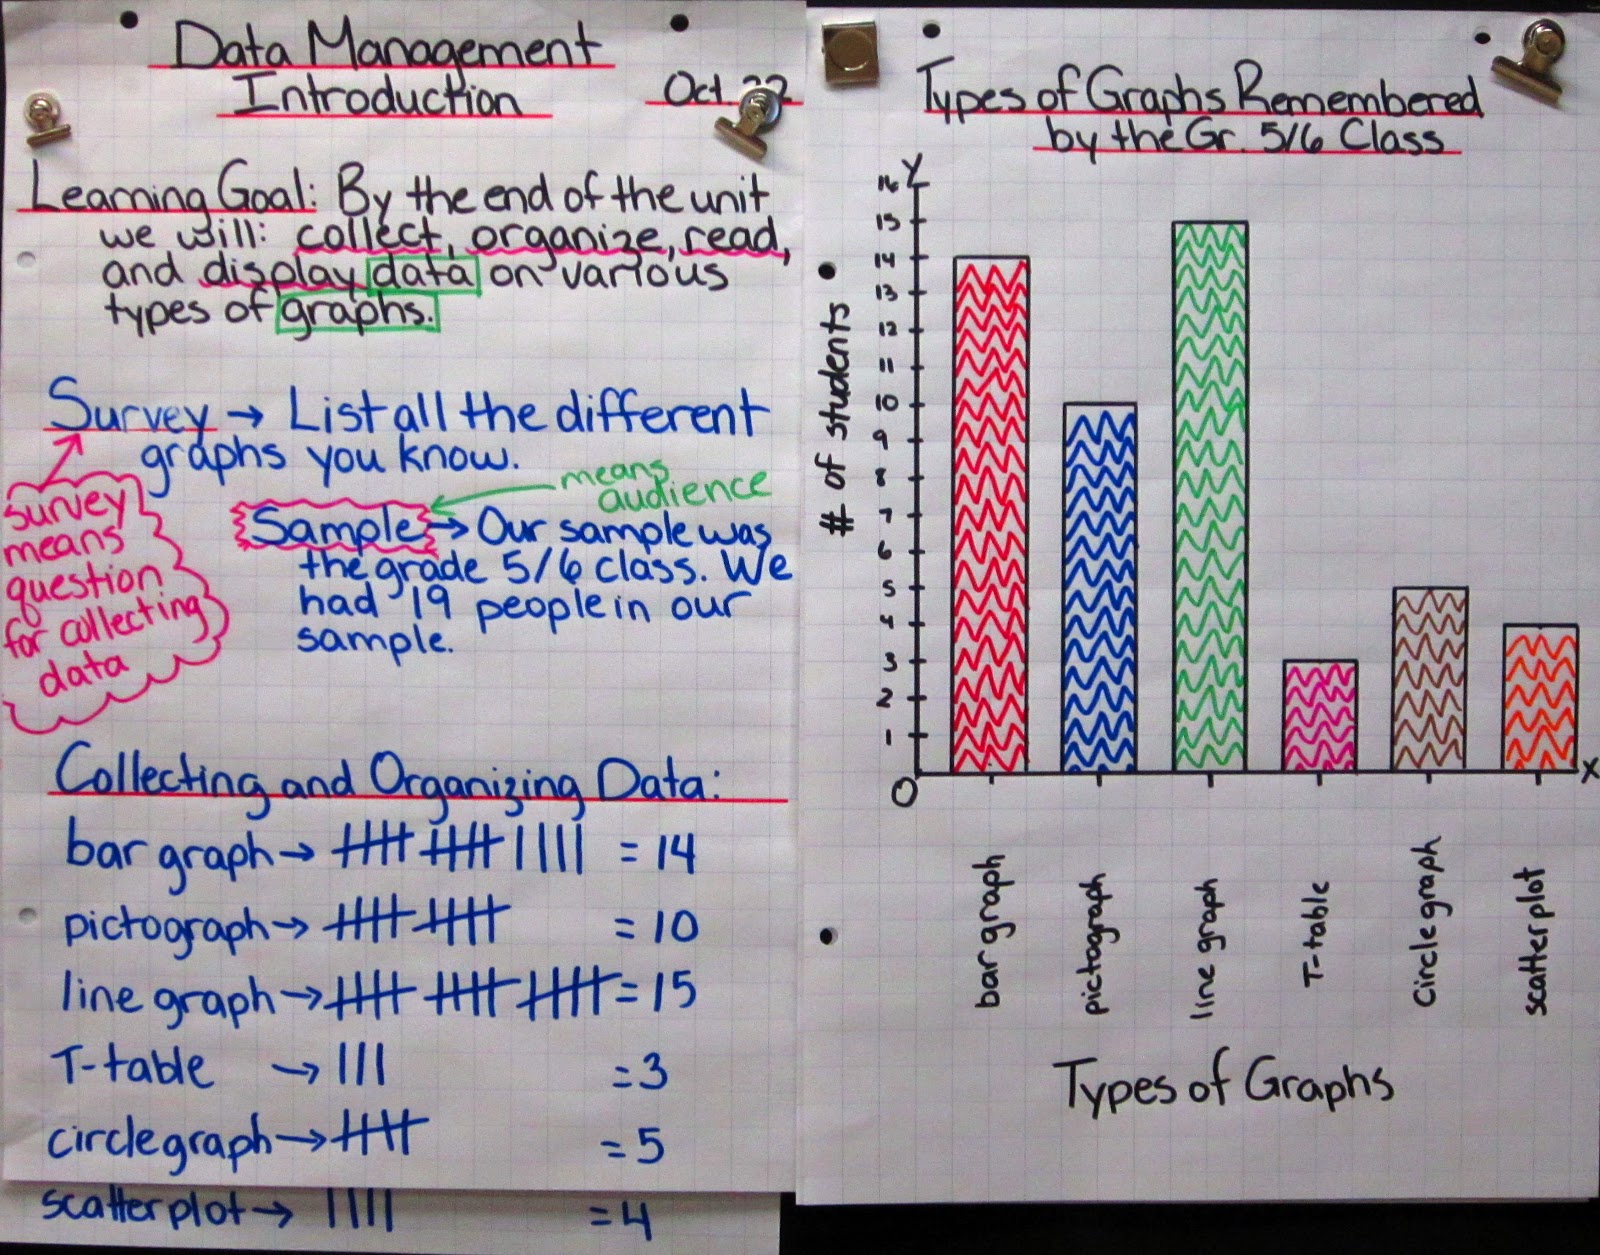 Data Management
Introduction
Oct 22
Learning Goal: By the end of the unit
we will: collect, organize, read,
and display data on various
types of graphs.
Survey → List all the different
graphs you know.
survey
means
question
for collecting
data
means
audience
Sample → Our sample was
the grade 5/6 class. We
had 19 people in our
sample.
Collecting and Organizing Data:
bar graph → = 14
pictograph → = 10
line graph → = 15
T-table → = 3
circle graph → = 5
scatter plot → = 4
Types of Graphs Remembered
by the Gr. 5/6 Class
Y
16
15
14
13
12
11
10
9
8
7
6
5
4
3
2
1
0
X
# of students
bar graph
pictograph
line graph
T-table
Circle graph
scatter plot
Types of Graphs